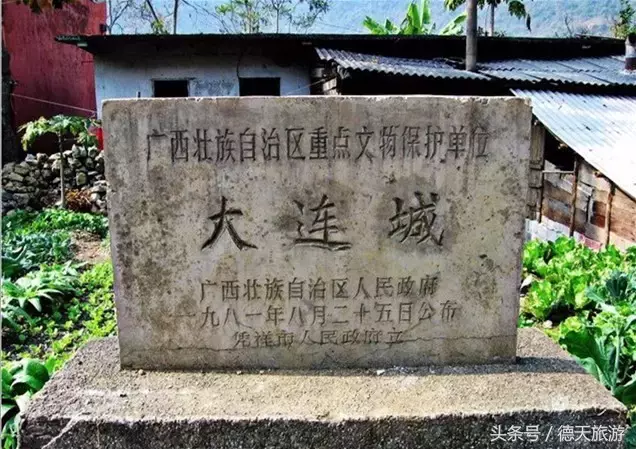 广西壮族自治区重点文物保护单位
大连城
广西壮族自治区人民政府
一九八一年八月二十五日公布
凭祥市人民政府立
头条号 / 德天旅游